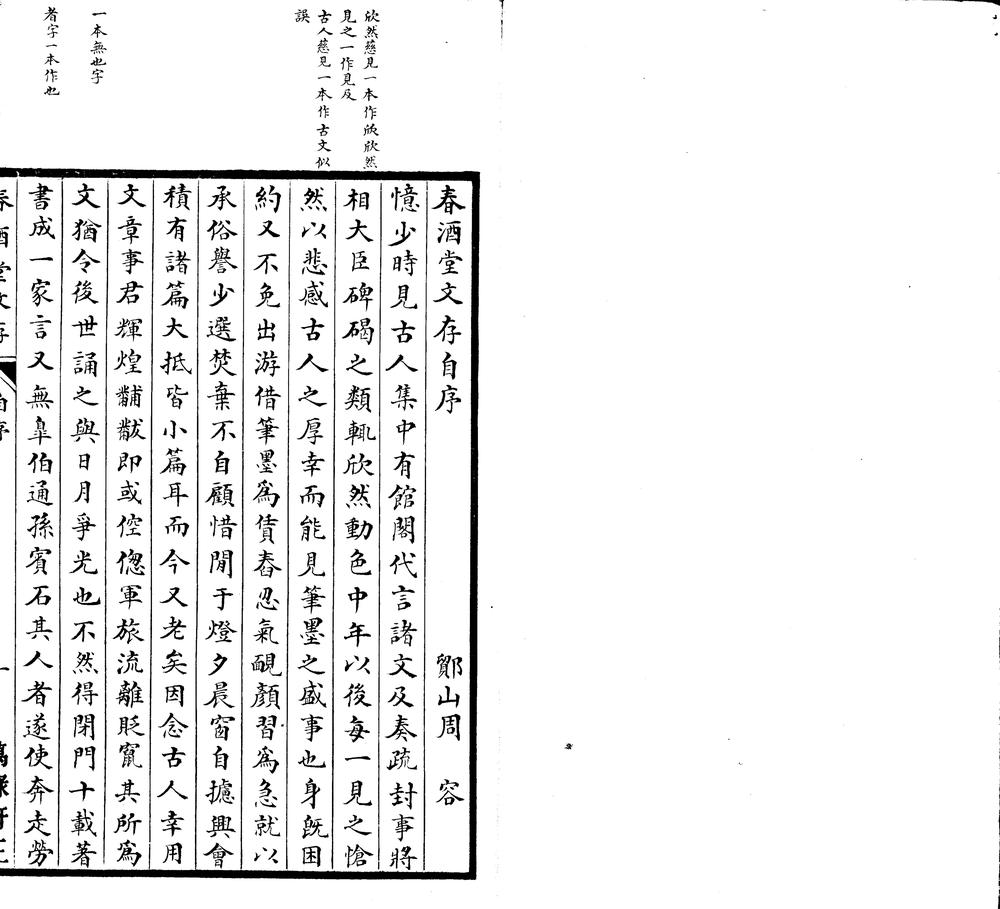 欣然慈見一本作欣欣然
見之一作見及
古人慈見一本作古文似
誤
一本無也字
者字一本作也
春酒堂文存自序
鄮山周 容
憶少時見古人集中有館閣代言諸文及奏疏封事將
相大臣碑碣之類輒欣然動色中年以後每一見之愴
然以悲感古人之厚幸而能見筆墨之盛事也身既困
約又不免出游借筆墨爲賃舂忍氣靦顏習爲急就以
承俗譽少選焚棄不自顧惜閒于燈夕晨窗自攄興會
積有諸篇大抵皆小篇耳而今又老矣因念古人幸用
文章事君輝煌黼黻即或倥傯軍旅流離貶竄其所爲
文猶令後世誦之與日月爭光也不然得閉門十載著
書成一家言又無皐伯通孫賓石其人者遂使奔走勞
春酒堂文存
自序
一